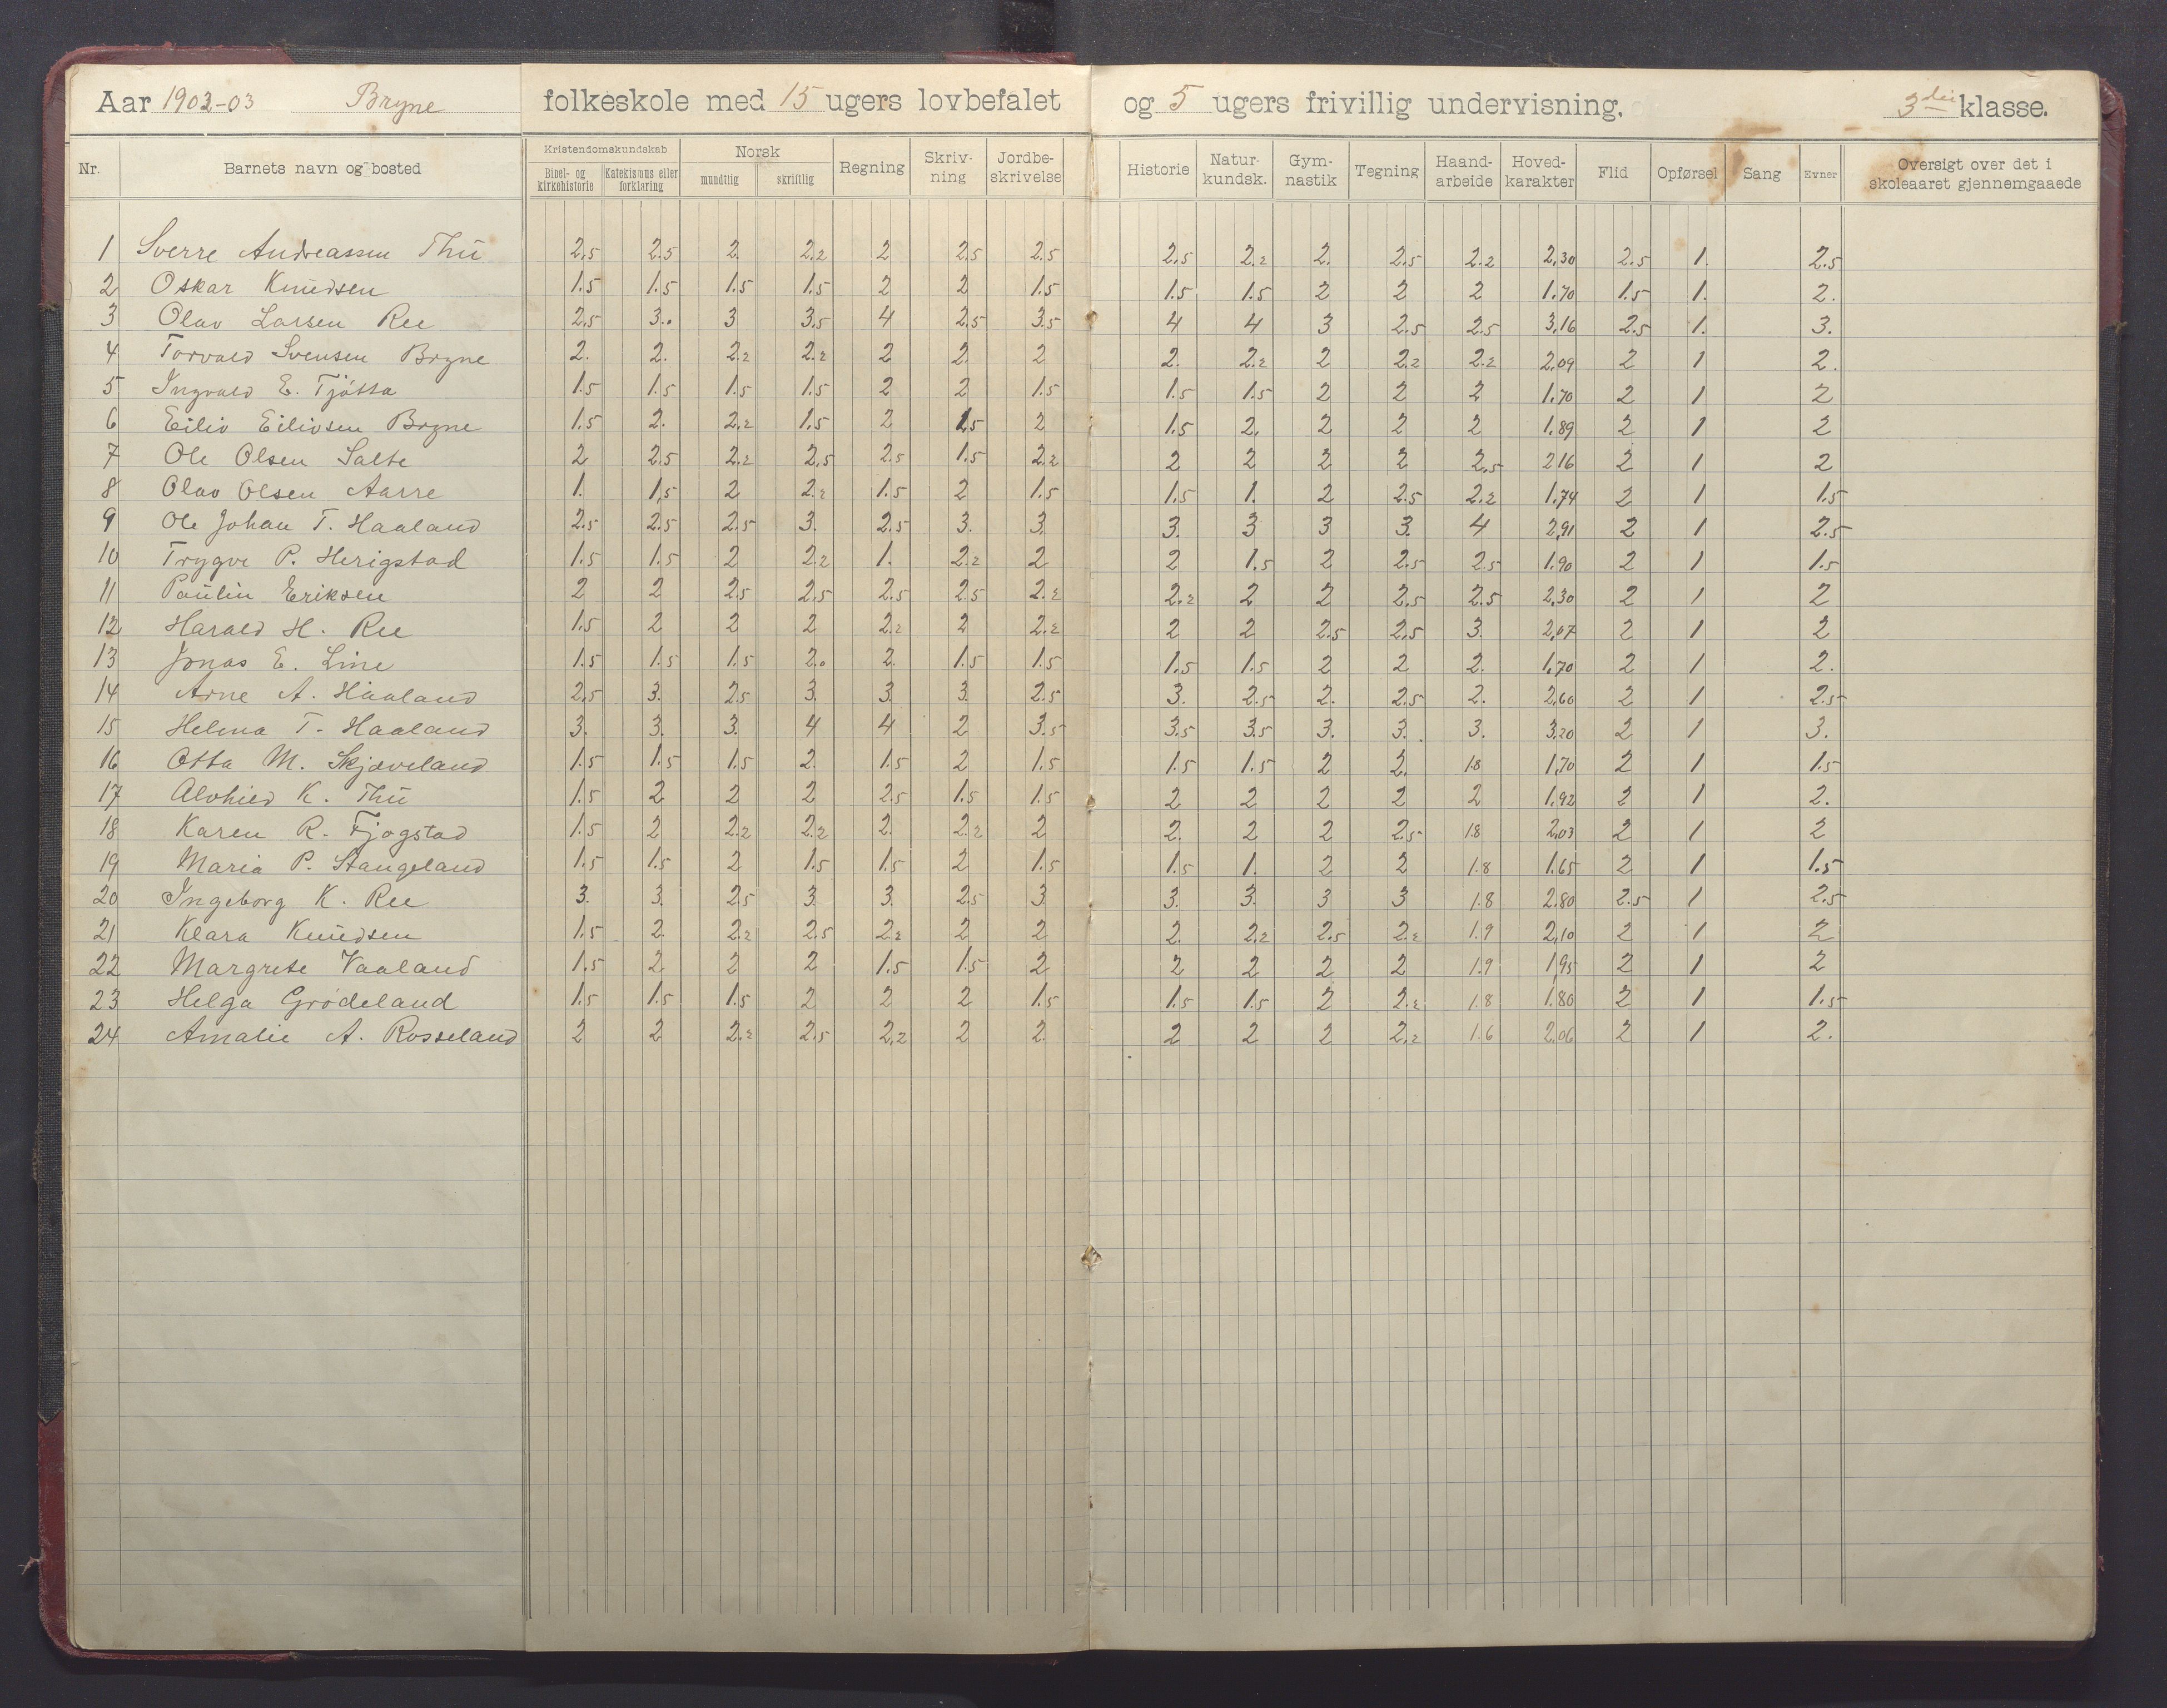 Aar 1902-03 Bryne folkeskole med 15 ugers lovbefalet og 5 ugers frivillig undervisning. 3die klasse.
Nr. Barnets navn og bosted Kristendomskundskab Bibel- og kirkehistorie Katekismus eller forklaring Norsk mundtlig skriftlig Regning Skriv-ning Jordbe-skrivelse Historie Natur-kundsk. Gym-nastik Tegning Haand-arbeide Hoved-karakter Flid Opførsel Sang Evner Oversigt over det i skoleaaret gjennemgaaede
1 Sverre Andreassen Thu 2,5 2.5 2. 2.2 2 2.5 2.5 2.5 2.2 2. 2.5 2.2 2,30 2.5 1. 2.5
2 Oskar Knudsen 1.5 1.5 1.5 1.5 2 2 1.5 1.5 1.5 2 2 2 1.70 1.5 1. 2.
3 Olav Larsen Ree 2,5 3.0 3 3,5 4 2,5 3.5 4 4 3 2.5 2.5 3,16 2.5 1. 3.
4 Torvald Svensen Bryne 2. 2. 2.2 2.2 2 2. 2 2. 2.2 2 2.2 2.2 2,09 2 1 2.
5 Ingvald E. Tjøtta 1.5 1.5 1.5 1.5 2 2 1.5 1.5 1.5 2 2 2 1.70 2 1 2
6 Eiliv Eilivsen Bryne 1.5 2. 2.2 1.5 2 1.5 2 1.5 2. 2 2 2 1.89 2 1 2
7 Ole Olsen Salte 2 2,5 2.2 2,5 2.5 1.5 2.2 2 2 2 2 2,5 2 16 2 1 2
8 Olav Olsen Aarre 1. 1,5 2 2.2 1.5 2 1.5 1.5 1. 2 2.5 2.2 1,74 2 1 1.5
9 Ole Johan T. Haaland 2.5 2.5 2.5 3. 2.5 3. 3. 3. 3 3 3. 4 2,91 2 1 2.5
10 Trygve P. Herigstad 1.5 1.5 2 2.2 1. 2.2 2 2 1.5 2 2.5 2.5 1.90 2 1 1.5
11 Paulin Eriksen 2 2 2.5 2,5 2.5 2.5 2.2 2.2 2 2 2.5 2.5 2,30 2 1 2
12 Harald H. Ree 1.5 2 2 2 2.2 2 2.2 2 2 2.5 2.5 3. 2,07 2 1 2
13 Jonas E. Line 1.5 1.5 1.5 2.0 2. 1.5 1.5 1.5 1.5 2 2 2. 1,70 2 1 2.
14 Arne A. Haaland 2,5 3. 2.5 3. 3. 3. 2.5 3. 2.5 2. 2.5 2. 2,60 2 1 2.5
15 Helma T. Haaland 3. 3. 3. 4 4 2 3.5 3.5 3.5 3. 3. 3. 3.20 2 1 3.
16 Otta M. Skjæveland 1.5 1.5 1.5 2. 1.5 2 1.5 1.5 1.5 2 2. 1.8 1,70 2 1 1.5
17 Alvhild K. Thu 1.5 2 2 2 2.5 1.5 1.5 2 2 2 2 2 1.92 2 1 2.
18 Karen R. Fjogstad 1.5 2 2.2 2.2 2. 2.2 2 2. 2 2 2.5 1.8 2,03 2 1 2
19 Maria P. Stangeland 1.5 1.5 2 1.5 1.5 2 1.5 1.5 1. 2 2 1.8 1.65 2 1 1.5
20 Ingeborg K. Ree 3. 3. 2.5 3. 3. 2.5 3. 3. 3. 3 3 1.8 2.80 2.5 1 2.5
21 Klara Knudsen 1.5 2. 2.2 2.5 2.2 2 2 2. 2.2 2.5 2.2 1.9 2,10 2 1 2
22 Margrete Vaaland 1.5 2 2 2 1.5 1.5 2 2 2 2 2 1.9 1,95 2 1 2
23 Helga Grødeland 1.5 1.5 1.5 2 2 2 1.5 1.5 1.5 2 2.2 1.8 1.80 2 1 1.5
24 Amalie A. Rosseland 2 2 2.2 2.5 2,2 2 2. 2 2 2 2,2 1.6 2.06 2 1 2.